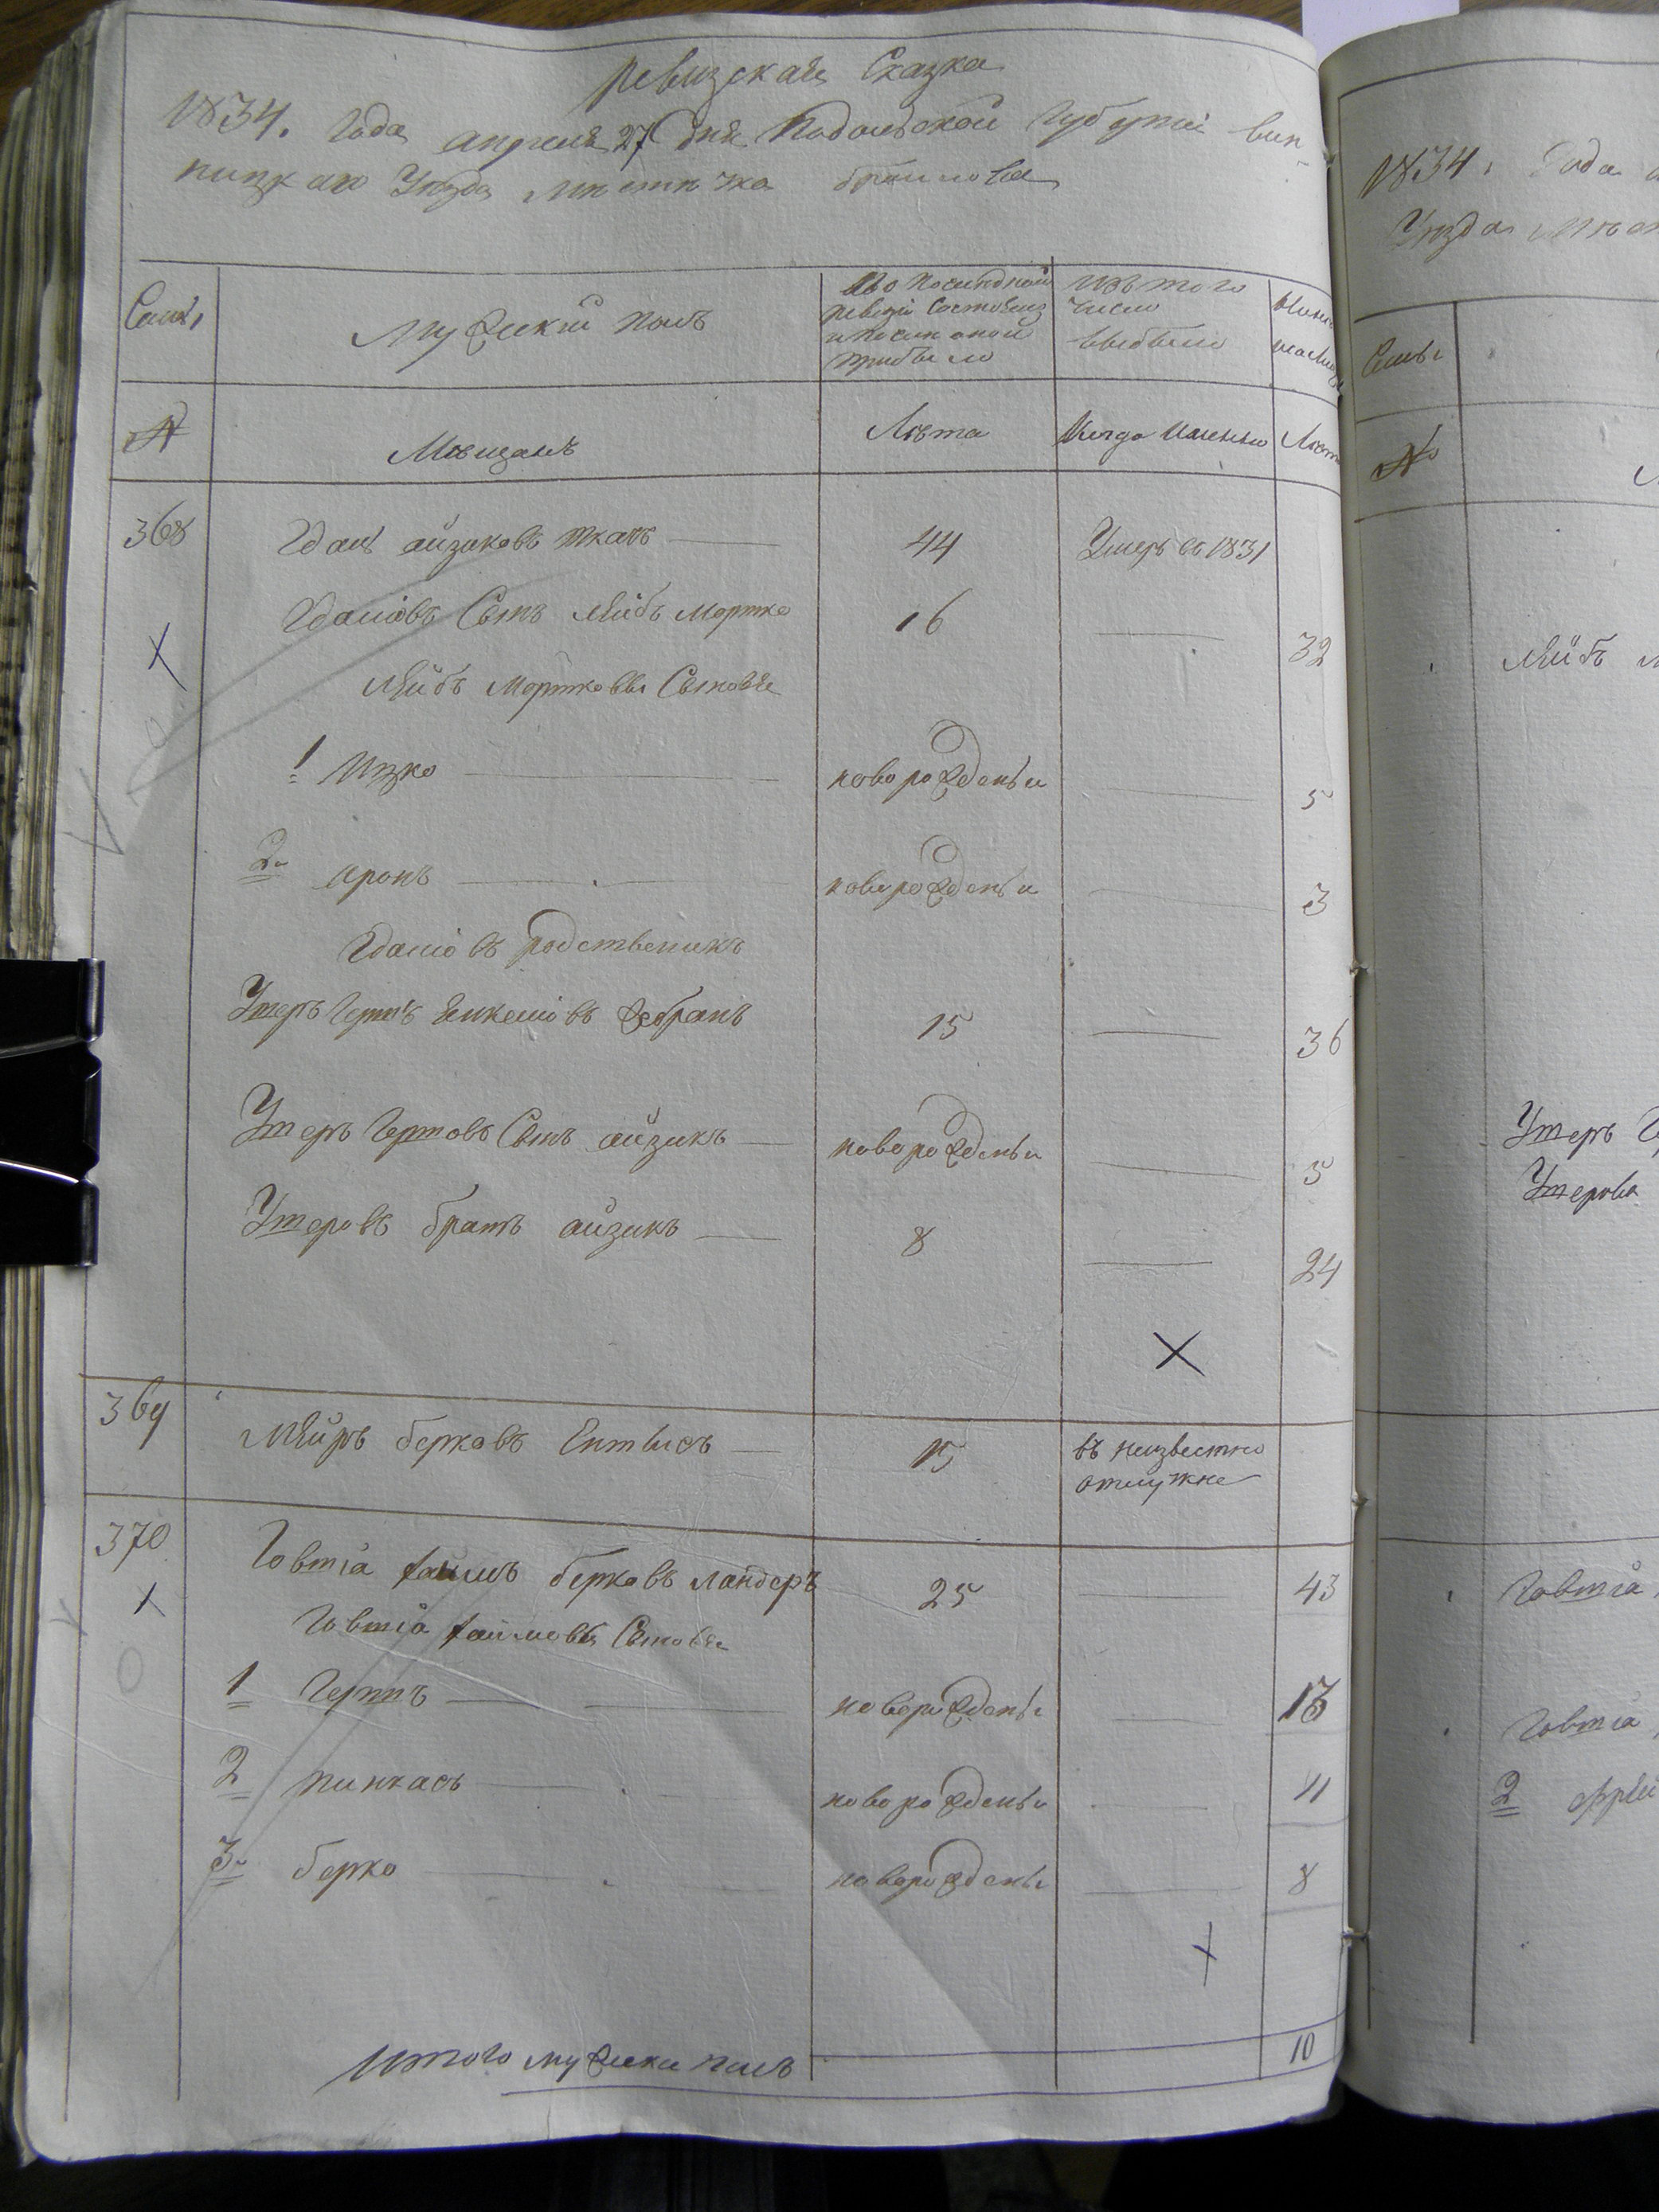 Ревизская Сказка
1834. Года апреля 27 дня Подольской Губерней вин-
ницкаго Уезда местечка браилова
Семьи
Мужеский полъ
По последней ревизи Состоялъ и после оной прибыло
изъ того число выбыло
Ныне на лицо
№
Мещанъ
Лѣта
Когда Именно
Лѣта
368
Гдаль айзиковъ ткачъ
44
Умеръ въ 1831
Гдалiовъ Сынъ лейбъ Мортко
16
32
лейбъ Мортковы Сыновя
1 Ицко
новорожденъи
5
2 аронъ
новорожденъи
3
Гдалiовъ родственикъ
Утеръ Герш Янкелiовъ
15
36
Утеръ Гершовъ Сынъ айзикъ
новорожденъи
5
Утеровъ братъ айзикъ
8
24
369
Мейръ берковъ
15
въ неизвестно отлужке
370
Говшiа хаимъ берковъ ландеръ
25
43
Говшiа хаимовы Сыновя
1 Гершъ
новорожденъи
13
2 пинкасъ
новорожденъи
11
3 берко
новорожденъи
8
Итого мужески полъ
10
1834. Года
Уезда
Семьи
№
лейбъ
Утеръ
Утерова
Говшiа
Говшiа
2